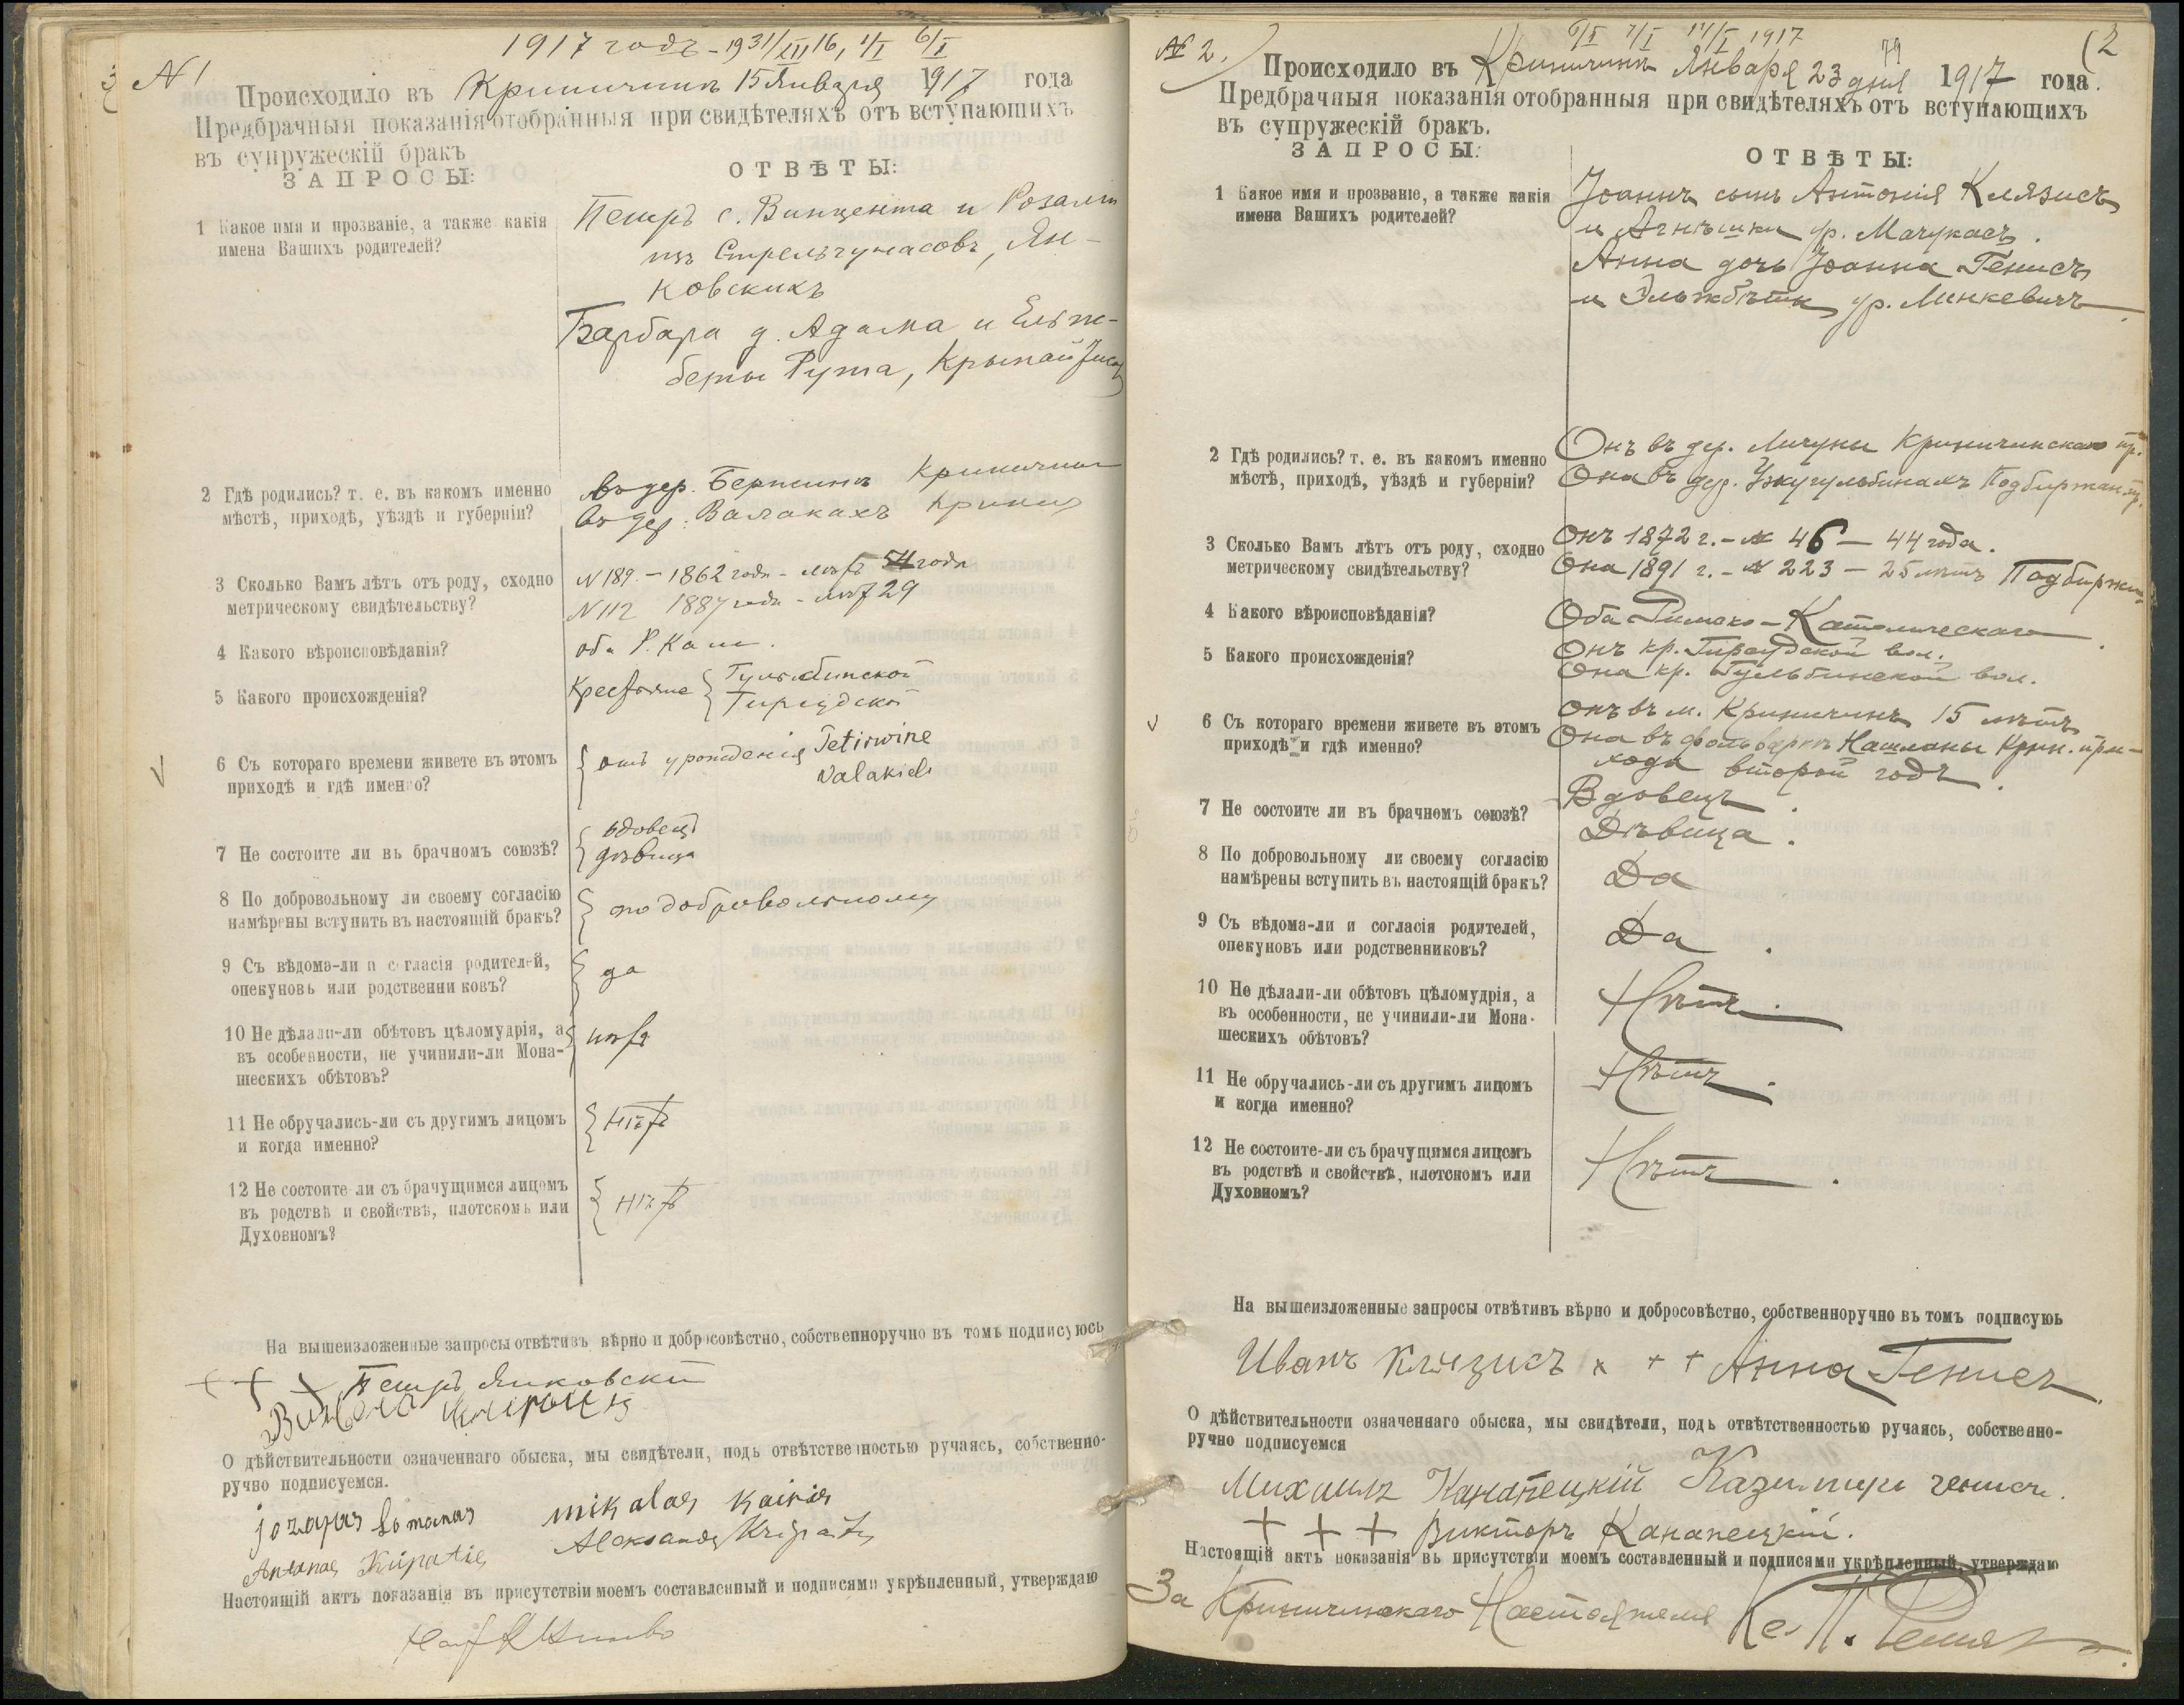 1917 годъ - 1931/XII 16, 1/I 6/I
№ 1
Происходило въ Криничинъ 15 Января 1917 года
Предбрачныя показанія отобранныя при свидѣтеляхъ отъ вступающихъ
въ супружескій бракъ
ЗАПРОСЫ: ОТВѢТЫ:
1 Какое имя и прозваніе, а также какія
имена Вашихъ родителей?
Петръ с. Винцента и Розалі
изъ Стрельчунасовъ, Ян-
ковскихъ
Барбара д. Адама и Ельж-
беты Рута,
2 Гдѣ родились? т. е. въ какомъ именно
мѣстѣ, приходѣ, уѣздѣ и губерніи?
въ дер.
въ дер. Валакахъ
3 Сколько Вамъ лѣтъ отъ роду, сходно
метрическому свидѣтельству?
N 189. - 1862 года - лѣтъ 54 года
N 112 1887 года - лѣтъ 29
4 Какого вѣроисповѣданія?
оба Р. Кат.
5 Какого происхожденія?
Крестьяне Гульбинской
Гирсудской
6 Съ котораго времени живете въ этомъ
приходѣ и гдѣ именно?
отъ урожденія Tetirwine
Valakieli
7 Не состоите ли въ брачномъ союзѣ?
вдовецъ
дѣвица
8 По добровольному ли своему согласію
намѣрены вступить въ настоящій бракъ?
по добровольному
9 Съ вѣдома-ли и согласія родителей,
опекуновъ или родственниковъ?
да
10 Не дѣлали-ли обѣтовъ цѣломудрія, а
въ особенности, не учинили-ли Мона-
шескихъ обѣтовъ?
нѣтъ
11 Не обручались-ли съ другимъ лицомъ
и когда именно?
нѣтъ
12 Не состоите-ли съ брачущимся лицомъ
въ родствѣ и свойствѣ, плотскомъ или
Духовномъ?
нѣтъ
На вышеизложенные запросы отвѣтивъ вѣрно и добросовѣстно, собственноручно въ томъ подписуюсь
+ + + Петръ Янковскій
О дѣйствительности означеннаго обыска, мы свидѣтели, подъ отвѣтственностью ручаясь, собственно-
ручно подписуемся.
jozapas mikalas Kairis
Antanas Kripatis Aleksandr
Настоящій актъ показанія въ присутствіи моемъ составленный и подписями укрѣпленный, утверждаю
6/I 7/I 14/I 1917
№ 2. 2
Происходило въ Криничинъ Января 23 дня 1917 года.
Предбрачныя показанія отобранныя при свидѣтеляхъ отъ вступающихъ
въ супружескій бракъ.
ЗАПРОСЫ: ОТВѢТЫ:
1 Какое имя и прозваніе, а также какія
имена Вашихъ родителей?
Іоаннъ сынъ Антонія Клязисъ
и Агнѣшки ур. Мачукасъ.
Анна дочь Іоанна Генисъ
и Эльжбѣты ур. Минкевичъ.
2 Гдѣ родились? т. е. въ какомъ именно
мѣстѣ, приходѣ, уѣздѣ и губерніи?
Онъ въ дер. Личуны Криничинскаго пр.
Она въ дер. Ужугульбинахъ Подбиржан. пр.
3 Сколько Вамъ лѣтъ отъ роду, сходно
метрическому свидѣтельству?
Онъ 1872 г. - № 46 - 44 года.
Она 1891 г. - № 223 - 25 лѣтъ
4 Какого вѣроисповѣданія?
Оба Римско-Католическаго.
5 Какого происхожденія?
Онъ кр. Гирсудской вол.
Она кр. Гульбинской вол.
6 Съ котораго времени живете въ этомъ
приходѣ и гдѣ именно?
Онъ въ м. Криничинъ 15 лѣтъ
Она въ фольваркѣ Нашланы Крин. при-
хода второй годъ.
7 Не состоите ли въ брачномъ союзѣ?
Вдовецъ.
Дѣвица.
8 По добровольному ли своему согласію
намѣрены вступить въ настоящій бракъ?
Да.
9 Съ вѣдома-ли и согласія родителей,
опекуновъ или родственниковъ?
Да.
10 Не дѣлали-ли обѣтовъ цѣломудрія, а
въ особенности, не учинили-ли Мона-
шескихъ обѣтовъ?
Нѣтъ.
11 Не обручались-ли съ другимъ лицомъ
и когда именно?
Нѣтъ.
12 Не состоите-ли съ брачущимся лицомъ
въ родствѣ и свойствѣ, плотскомъ или
Духовномъ?
Нѣтъ.
На вышеизложенные запросы отвѣтивъ вѣрно и добросовѣстно, собственноручно въ томъ подписуюь
Иванъ Клязисъ × + + Анна Генисъ.
О дѣйствительности означеннаго обыска, мы свидѣтели, подъ отвѣтственностью ручаясь, собственно-
ручно подписуемся
Михаилъ Канапецкій Казимиръ генисъ.
+ + + Викторъ Канапецкій.
Настоящій актъ показанія въ присутствіи моемъ составленный и подписями укрѣпленный, утверждаю
За Криничинскаго Настоятеля Кс. П.